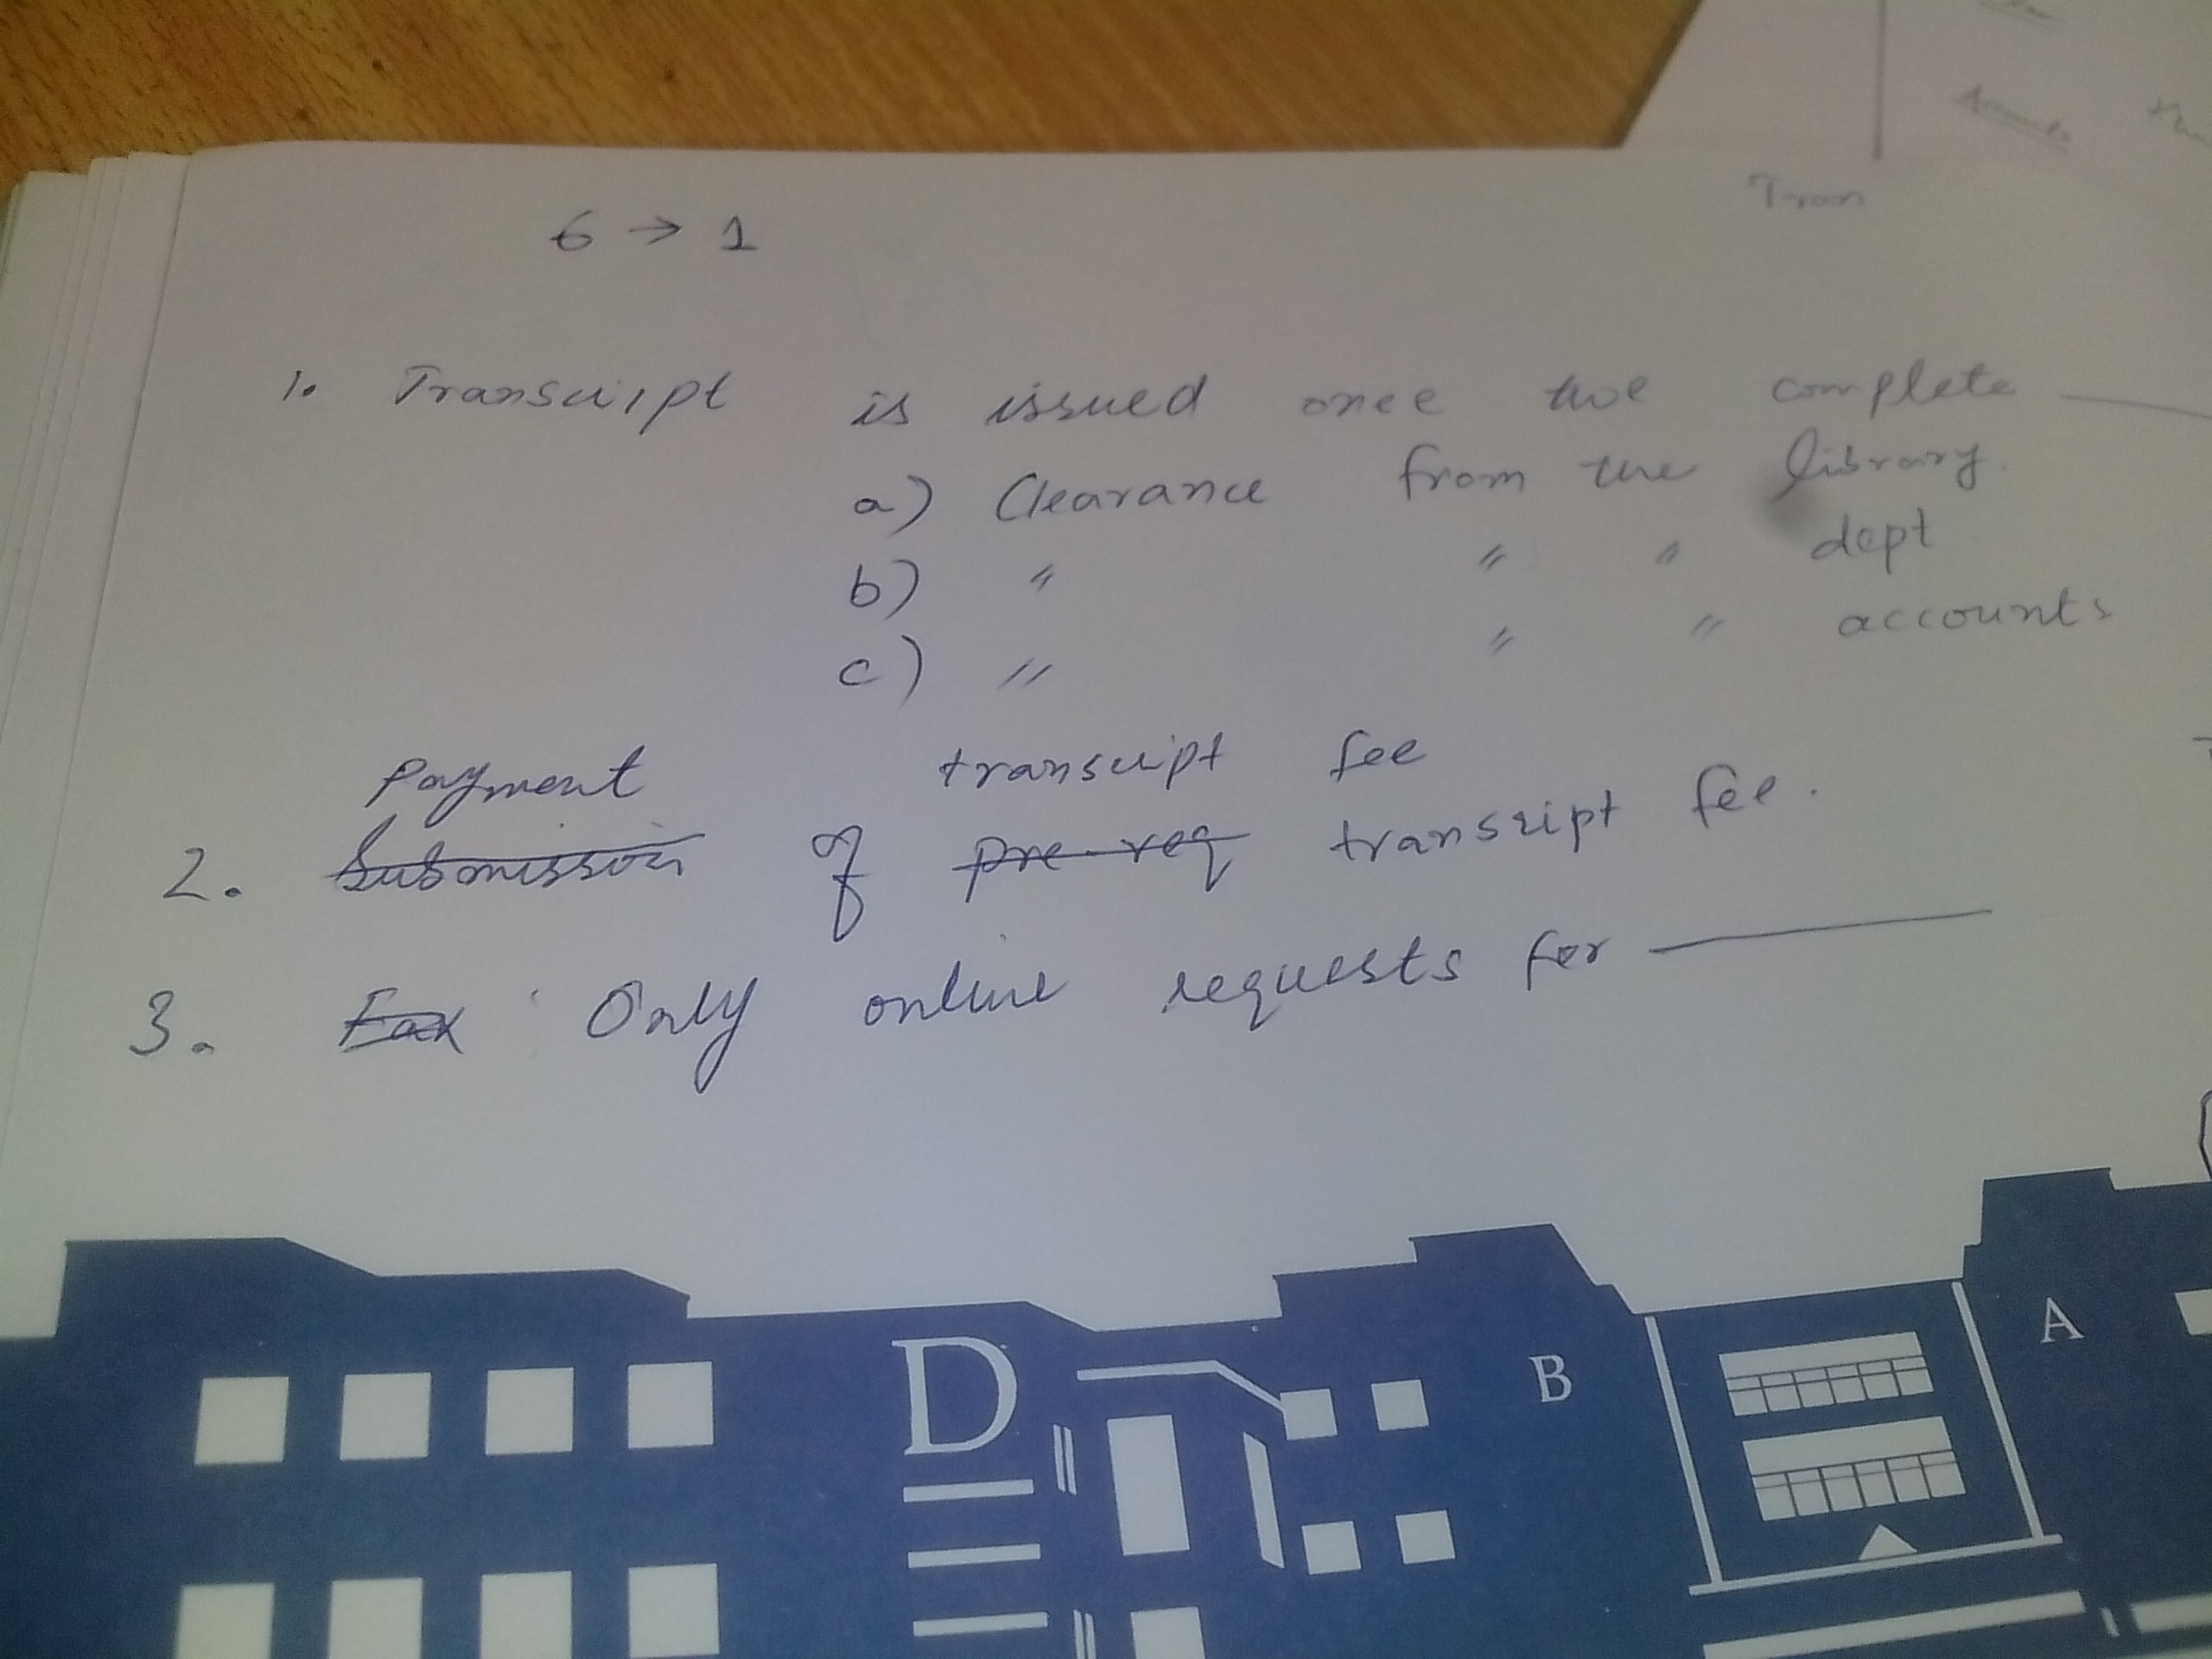 Accounts
Tran
6 → 1
1. Transcript is issued once the complete
a) Clearance from the library.
b) " " " dept
c) " " " accounts
Payment transcript fee
2. Submission of pre-req transcript fee.
3. Fax Only online requests for
D
B
A